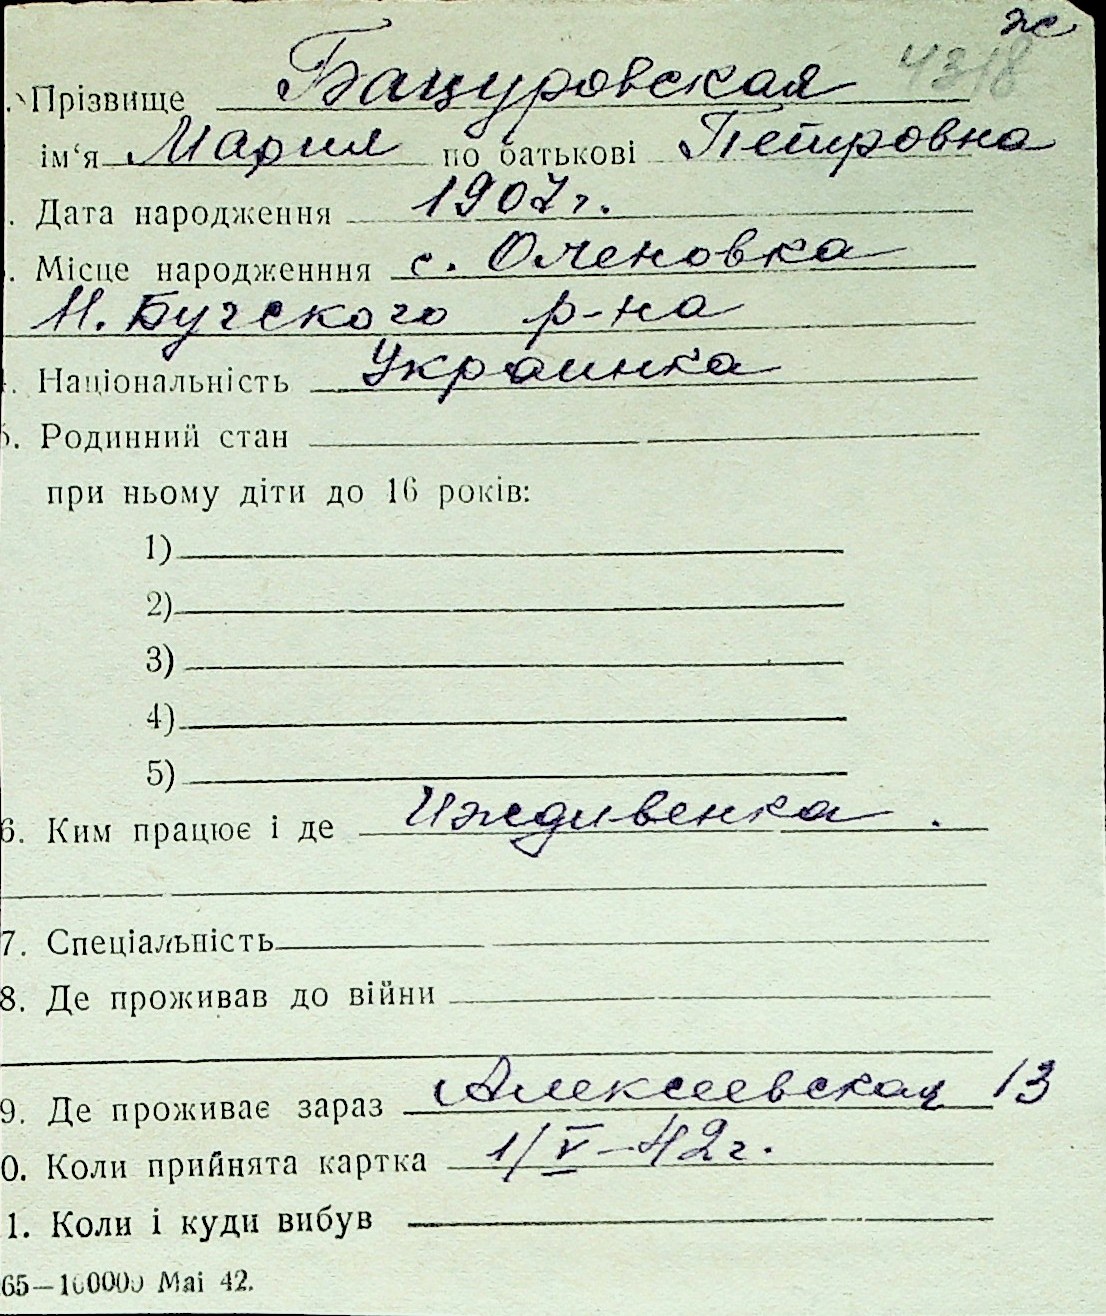 ж
4318
. Прізвище Бацуровская
ім‘я Мария по батькові Петровна
. Дата народження 1907 г.
. Місце народженння с. Оленовка
Н. Бугского р-на
. Національність Украинка
5. Родинний стан
при ньому діти до 16 років:
1)
2)
3)
4)
5)
6. Ким працює і де Иждивенка .
7. Спеціальність
8. Де проживав до війни
9. Де проживає зараз Алексеевская 13
0. Коли прийнята картка 1/V–42 г.
1. Коли і куди вибув
65—100000 Mai 42.